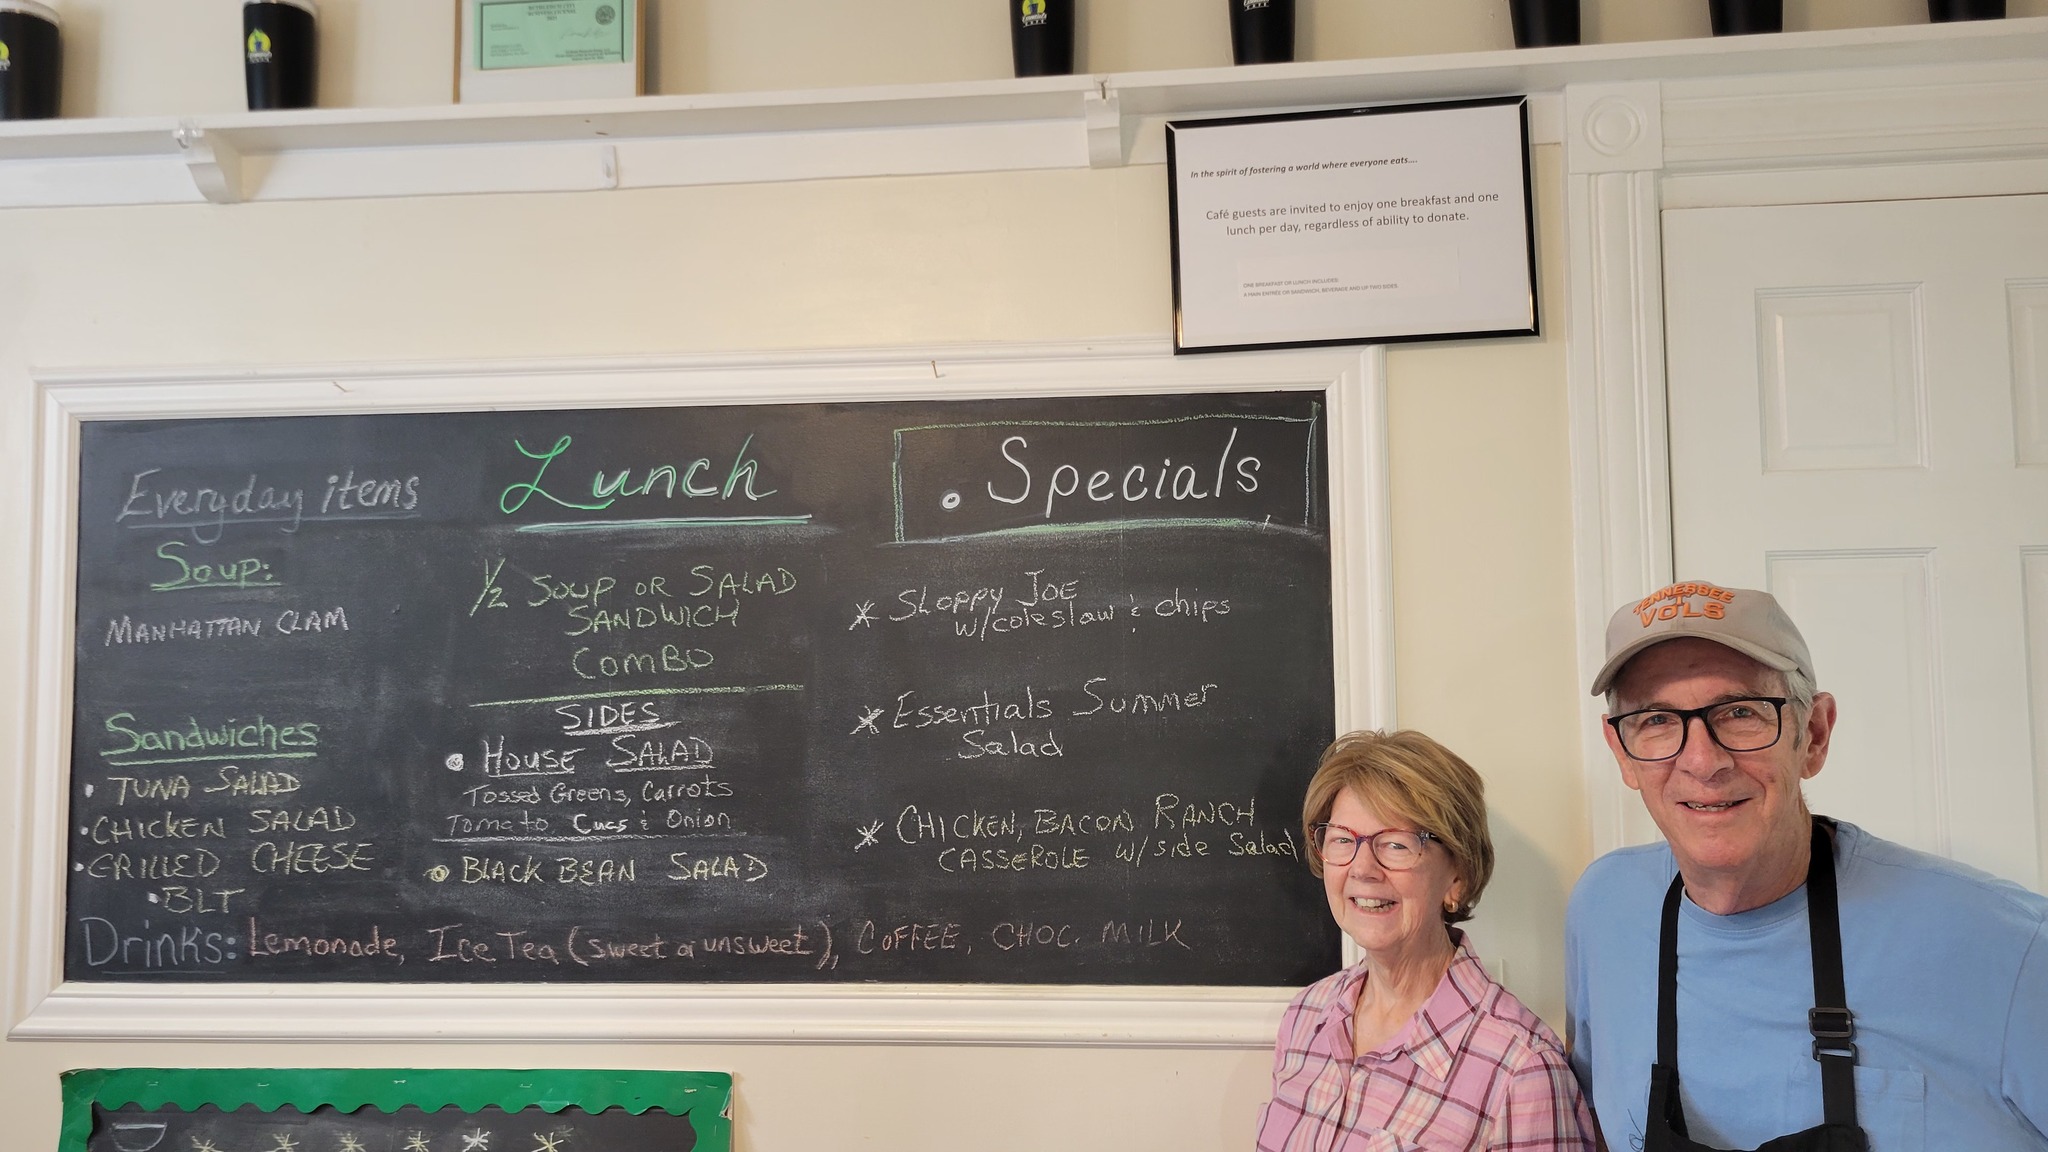 In the spirit of fostering a world where everyone eats....
Café guests are invited to enjoy one breakfast and one
lunch per day, regardless of ability to donate.
ONE BREAKFAST OR LUNCH INCLUDES:
A MAIN ENTRÉE OR SANDWICH, BEVERAGE AND UP TWO SIDES.
Everyday items
Soup:
MANHATTAN CLAM
Sandwiches
• TUNA SALAD
• CHICKEN SALAD
• GRILLED CHEESE
• BLT
Lunch
1/2 SOUP OR SALAD
SANDWICH
COMBO
SIDES
• HOUSE SALAD
Tossed Greens, Carrots
Tomato Cucs & Onion
• BLACK BEAN SALAD
• Specials
* SLOPPY JOE
w/coleslaw & chips
* Essentials Summer
Salad
* CHICKEN, BACON RANCH
CASSEROLE w/side Salad
Drinks: Lemonade, Ice Tea (sweet or unsweet), COFFEE, CHOC. MILK
TENNESSEE
T
VOLS